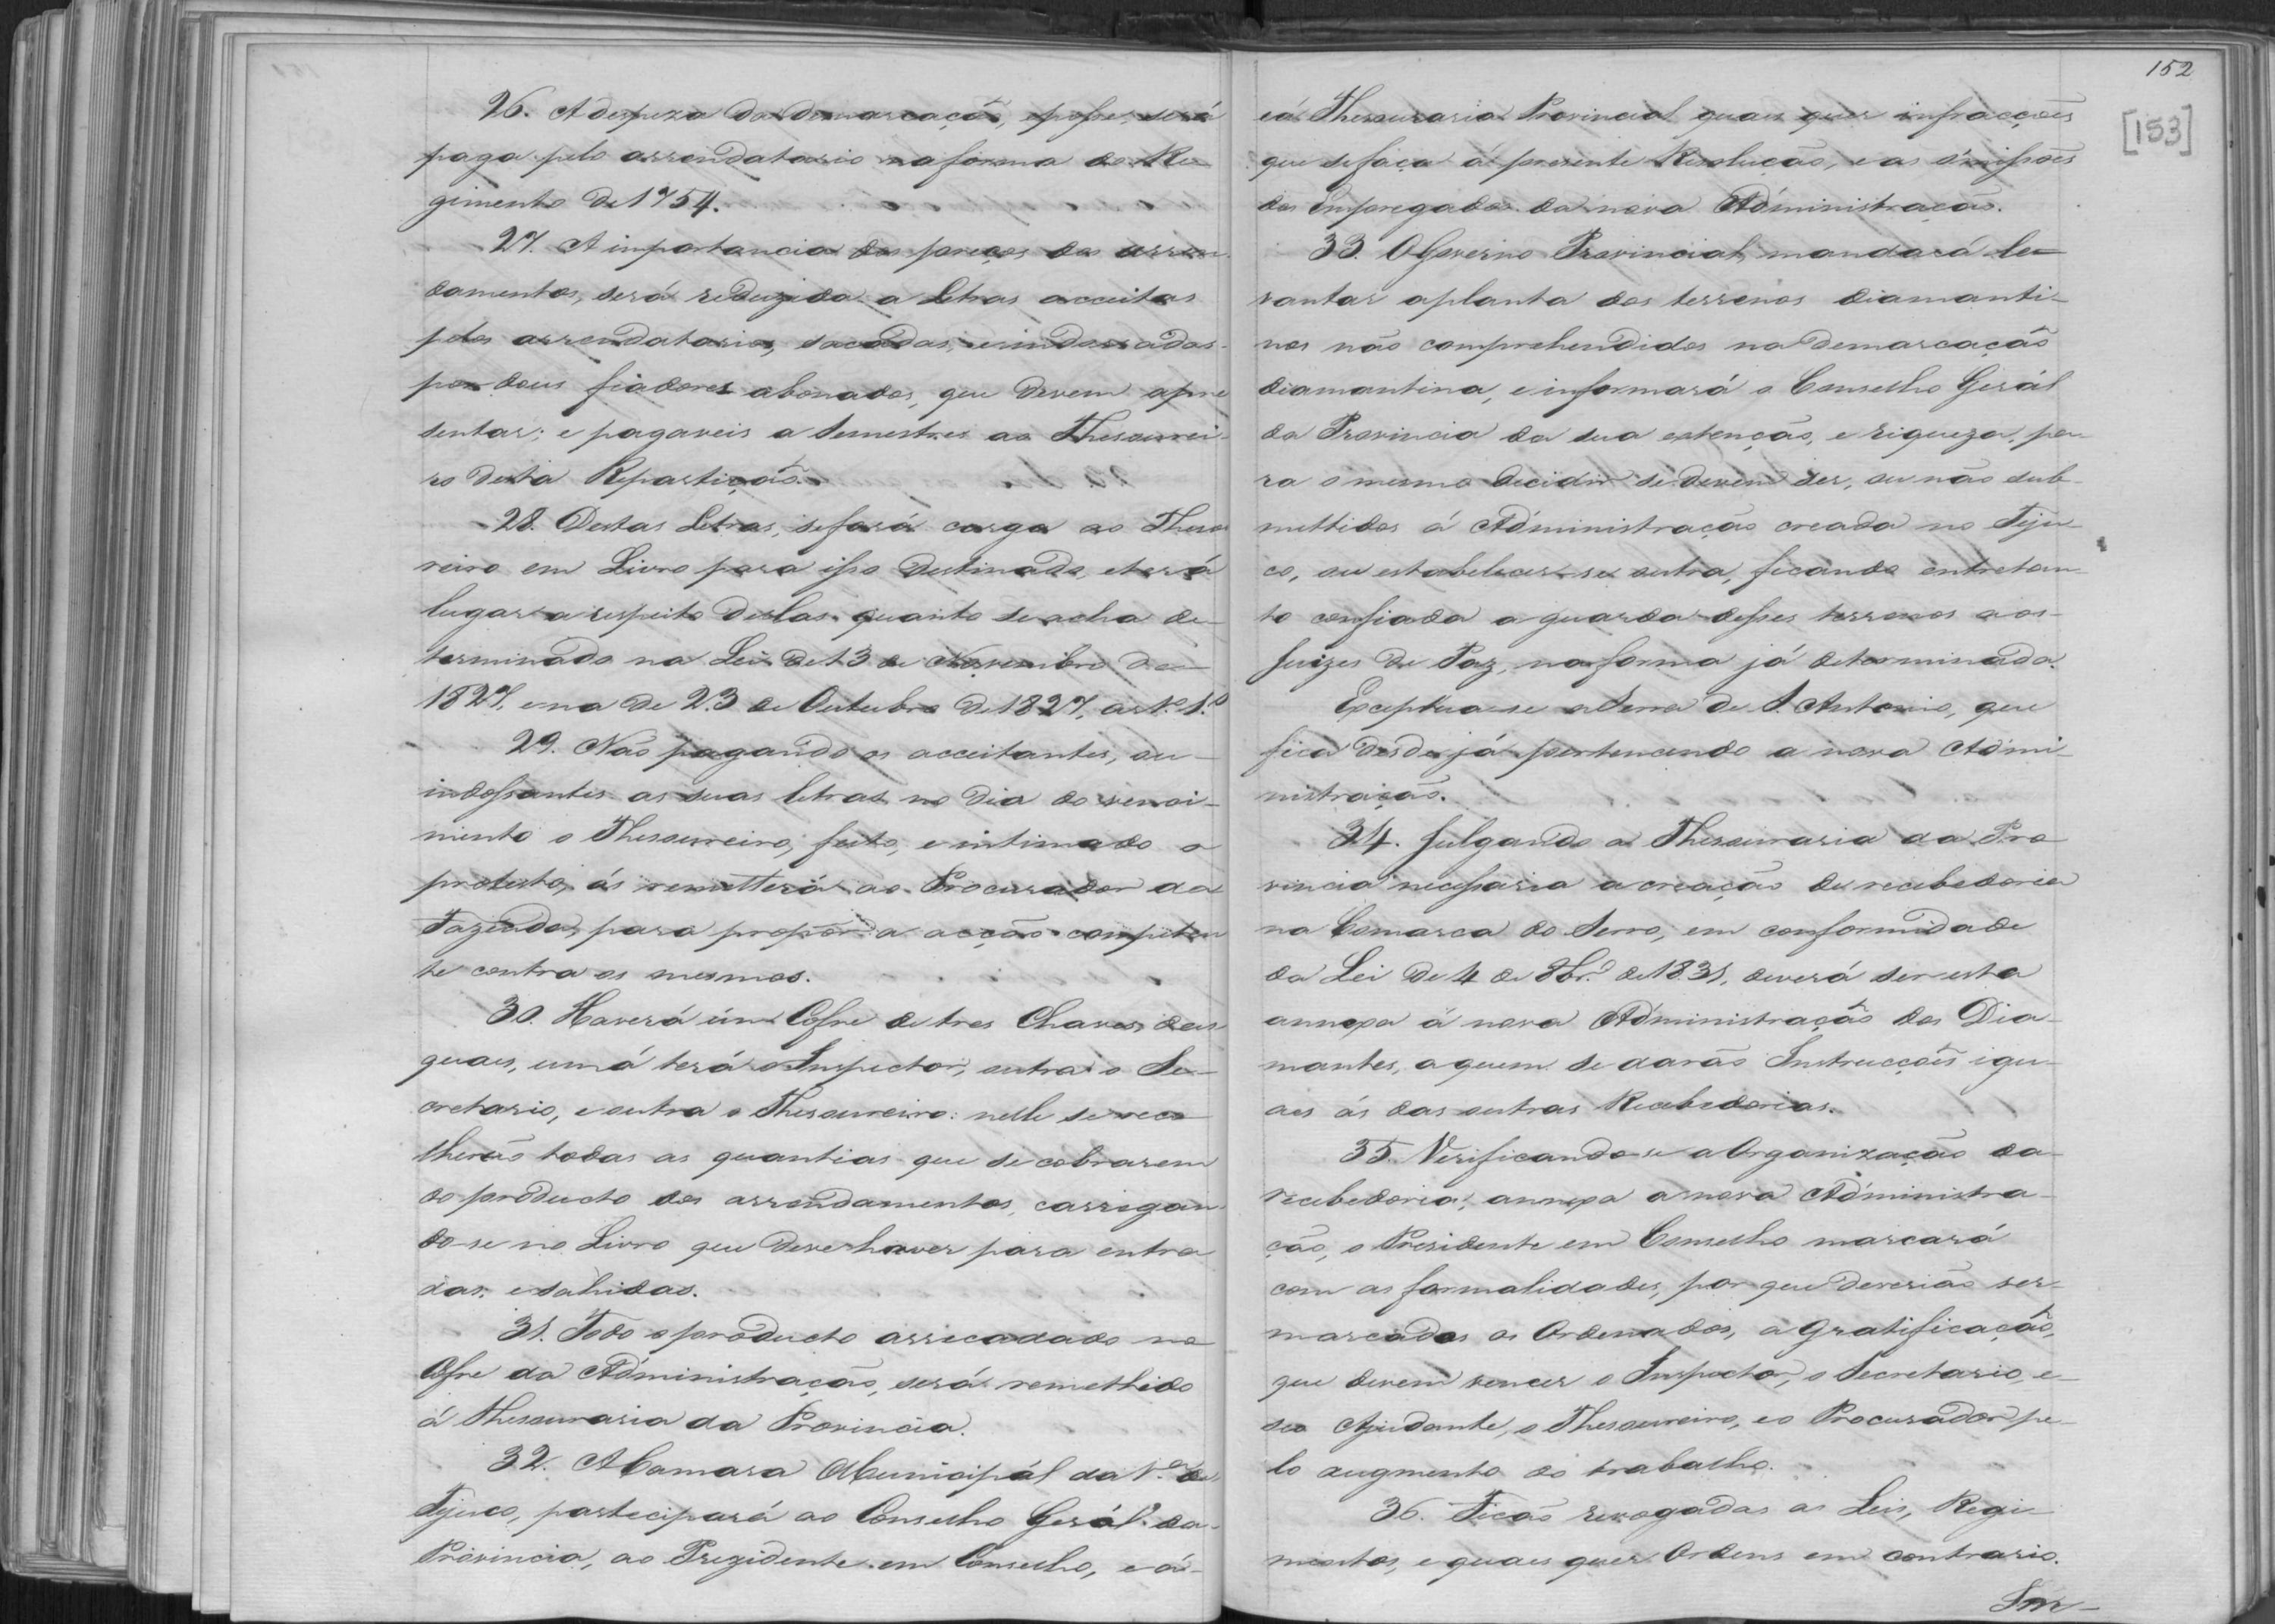 26. A despeza da demarcação, e posse, será
paga pelo arrendatario na forma do Re-
gimento de 1754.
27. A importancia dos preços dos arren-
damentos, será reduzida a Letras acceitas
pelos arrendatarios, sacadas, e indossadas
por dous fiadores abonados, que devem apre
sentar; e pagaveis a Semestres ao Thesourei-
ro desta Repartição.
28. Destas Letras, se fará carga ao Thesou
reiro em Livro para isso destinado, e terá
lugar a respeito dellas quanto se acha de-
terminado na Lei de 13 de Novembro de
1827, e na de 23 de Outubro de 1827, art.º 1.º
29. Não pagando os acceitantes, ou
indossantes as suas letras no dia do venci-
mento o Thesoureiro, feito, e intimado o
protesto, ás remetterá ao Procurador da
Fazenda, para propôr a acção competen
te contra os mesmos.
30. Haverá um Cofre de tres Chaves, das
quaes, umá terá o Inspector, outra o Se-
cretario, e outra o Thesoureiro: nelle se reco
lherão todas as quantias que se cobrarem
do producto dos arrendamentos, carregan-
do-se no Livro que deve haver para entra
das, e sahidas.
31. Todo o producto arrecadado no
Cofre da Administração, será remettido
á Thesouraria da Provincia.
32. A Camara Municipál da V.ª do
Tejuco, participará ao Conselho Gerál da
Provincia, ao Prezidente em Conselho, e á
152
[153]
eá Thesouraria Provincial quaes quer infracções
que se faça á presente Resolução, e as omissões
dos Empregados da nova Administração.
33. O Governo Provincial mandará le-
vantar a planta dos terrenos diamanti-
nos não comprehendidos na demarcação
diamantina, e informará o Conselho Gerál
da Provincia da sua extenção, e riqueza, pa-
ra o mesmo decidir se devem ser, ou não sub-
mettidos á Administração creada no Teju-
co, ou estabelecer-se outra, ficando entretan-
to confiada a guarda desses terrenos aos
Juizes de Paz, na forma já determinada.
Exceptua-se a Serra de S. Antonio, que
fica desde já pertencendo a nova Admi-
nistração.
34. Julgando a Thesouraria da Pro
vincia necessaria a creação de recebedoria
na Comarca do Serro, em conformidade
da Lei de 4 de 8br.º de 1831, deverá ser esta
annexa á nova Administração dos Dia-
mantes, a quem se darão Instrucções igu-
aes ás das outras Recebedorias.
35. Verificando-se a Organização da
recebedoria, annexa a nova Administra-
ção, o Presidente em Conselho marcará
com as formalidades, por que deverião ser
marcados os Ordenados, a gratificação,
que devem vencer o Inspector, o Secretario, e
seo Ajudante, o Thesoureiro, e o Procurador pe-
lo augmento do trabalho.
36. Ficão revogadas as Leis, Regi-
mentos, e quaes quer Ordens em contrario.